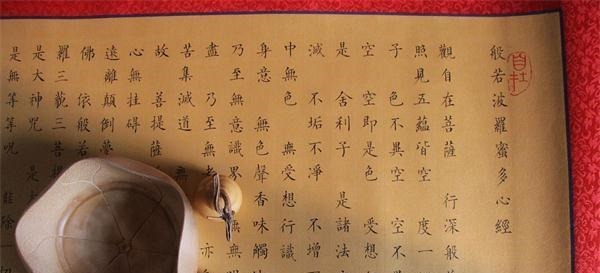 般若波羅蜜多心經
觀自在菩薩 行深般
照見五蘊皆空 度一
子 色不異空 空不
空 空即是色 受想
是 舍利子 是諸法
滅 不垢不淨 不增
中無色 無受想行識
身意 無色聲香味觸
乃至無意識界 無無
盡 乃至無老 亦
苦集滅道 無
故 菩提薩
心無挂礙
遠離顛倒夢
佛 依般若
羅三藐三菩提
是大神咒 是
是無等等呪 能除一